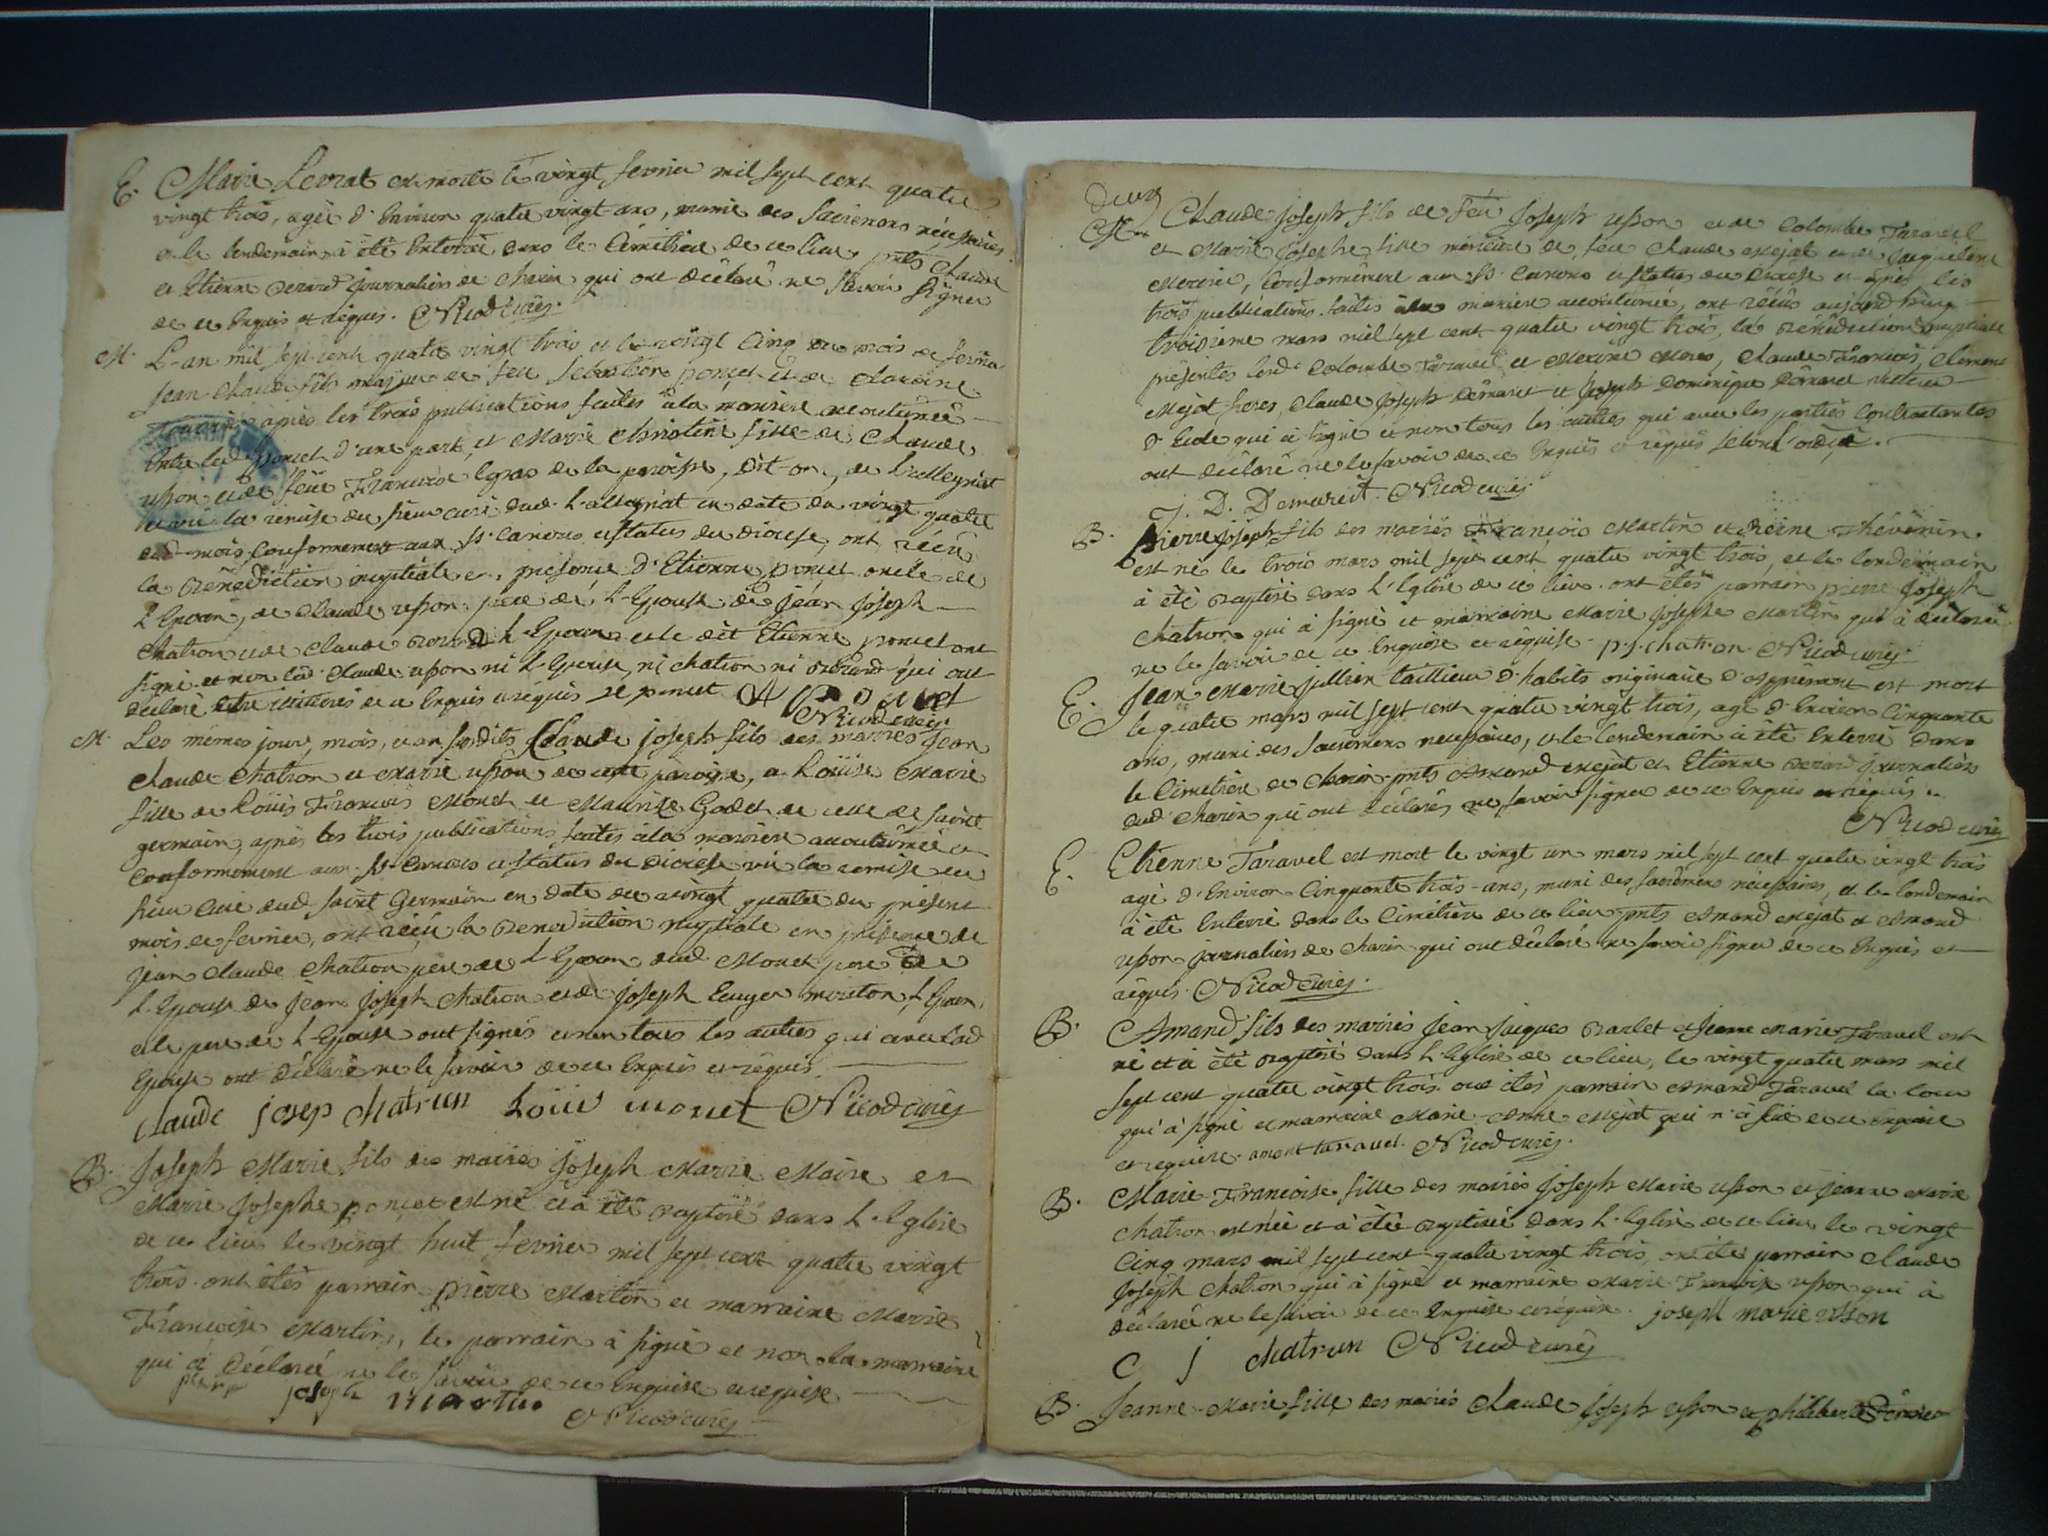 E. Marie Levrat est morte le vingt fevrier mil sept cent quatre
vingt trois, agée d'Environ quatre vingt ans, munie des Sacremens nécessaires
et le lendemain à été Enterrée dans le Cimitiere de ce lieu, pnts Claude
et Etienne Berard journaliers de Charix qui ont déclaré ne savoir signer
de ce Enquis et requis. Nicod curé
M. L'an mil sept cent quatre vingt trois et le vingt Cinq du mois de fevrier
Jean Claude fils majeur de feu Sebastien poncet et de Claudine
après les trois publications faites à la maniere accoutumée
Entre led poncet d'une part, et Marie Christine fille de Claude
upson et de feüe Françoise Egras de la paroisse, dit-on, de L'alleyriat
la remise du sieur curé dud. L'alleyriat en date du vingt quatre
dud mois Conformement aux Sts Canons et statuts du diocese, ont reçu
la Bénédiction nuptiale en présence d'Etienne poncet oncle de
l'Epoux, de Claude upson père de l'Epouse de Jean Joseph
Chatron et de Claude Berard l'Epoux et le dit Etienne poncet ont
signé et non led Claude upson ni l'Epouse, ni Chatron ni Berard qui ont
déclaré être illitérés de ce Enquis et requis ye poncet poncet
Nicod curé
M. Les mêmes jour, mois, et an susdits Claude joseph fils des mariés Jean
Claude Chatron et Marie upson de cette paroisse, et Loüise Marie
fille de Loüis François Monet et Maurise Godet de celle de Saint
germain, après les trois publications faites à la maniere accoutumée et
Conformement aux Sts Canons et statuts du diocese, vû la remise du
sieur Curé dud Saint Germain en date du vingt quatre du présent
mois de fevrier, ont reçu la Benediction nuptiale en présence de
Jean Claude Chatron père de l'Epoux dud Monet père de
l'Epouse de Jean Joseph Chatron et de Joseph Eugen mouton, l'Epoux,
et le pere de l'Epouse ont signés et non tous les autres qui avec lad
Epouse ont déclaré ne le savoir de ce Enquis et requis.
claude josep chatrun Loüis monet Nicod curé
B. Joseph Marie fils des mariés Joseph Marie Maire et
Marie Josephe poncet est né et à été baptisé dans l'Eglise
de ce lieu le vingt huit fevrier mil sept cent quatre vingt
trois. ont étés parrain pierre Martin et marraine Marie
Françoise Martin, le parrain à signé et non la marraine
qui à déclaré ne le savoir de ce Enquise et requise
pierre joseph martin
Nicod curé
deux
M. Claude Joseph fils de feu Joseph upson et de Colombe Taravel
et Marie Josephe fille mineure de feu Claude Mejat et de Jacqueline
Mermet, Conformément aux Sts Canons et statuts du diocese et après les
trois publications faites à la maniere accoutumée, ont reçûs aujourd'huy
troisième mars mil sept cent quatre vingt trois, la Bénédiction nuptiale
présentes lesd. Colombe Taravel et Mermet Meres, Claude François, Clement
Mejat freres, Claude Joseph Démaret et Joseph Dominique Démaret Recteur
d'Ecole qui à signé et non tous les autres qui avec les parties Contractantes
ont déclaré ne le savoir de ce Enquis et requis selon l'ord.ce
J. D. Demareit. Nicod curé
B. Pierre Joseph fils des mariés François Martin et Reine Thévenin
est né le trois mars mil sept cent quatre vingt trois, et le lendemain
à été Baptisé dans l'Eglise de ce lieu. ont étés parrain pierre Joseph
Chatron qui à signé et marraine Marie Josephe Martin qui à déclaré
ne le savoir de ce Enquise et requise. p.j. chatron. Nicod curé
E. Jean Marie Jullien tailleur d'habits originaire d'Aspremont est mort
le quatre mars mil sept cent quatre vingt trois, agé d'Environ Cinquante
ans, muni des Sacremens necessaires, et le lendemain à été Enterré dans
le Cimetière de Charix pnts Amand Mejat et Etienne Berard journaliers
dud. Charix qui ont déclarés ne savoir signer de ce Enquis et requis.
Nicod curé
E. Etienne Taravel est mort le vingt un mars mil sept cent quatre vingt trois
agé d'Environ Cinquante trois ans, muni des sacremens nécessaires, et le lendemain
à été Enterré dans le Cimetière de ce lieu pnts Amand Mejat et Amand
upson journaliers de Charix qui ont déclaré ne savoir signer de ce Enquis et
requis. Nicod curé.
B. Amand fils des mariés Jean Jacques Barlet et Jeanne Marie Taravel est
né et à été Baptisé dans l'Eglise de ce lieu, le vingt quatre mars mil
sept cent quatre vingt trois. ont étés parrain Amand Taravel la Cour
qui à signé et marraine Marie-Anne Mejat qui n'à sçu de ce enquise
et requise. ament taravel. Nicod curé.
B. Marie Françoise fille des mariés Joseph Marie upson et Jeanne Marie
Chatron est née et à été Baptisée dans l'Eglise de ce lieu le vingt
Cinq mars mil sept cent quatre vingt trois, ont étés parrain Claude
Joseph Chatron qui à signé et marraine Marie Françoise upson qui à
déclarée ne le savoir de ce Enquise et requise. joseph marie upson
C J chatrun Nicod curé
B. Jeanne-Marie fille des mariés Claude Joseph upson et philiberte